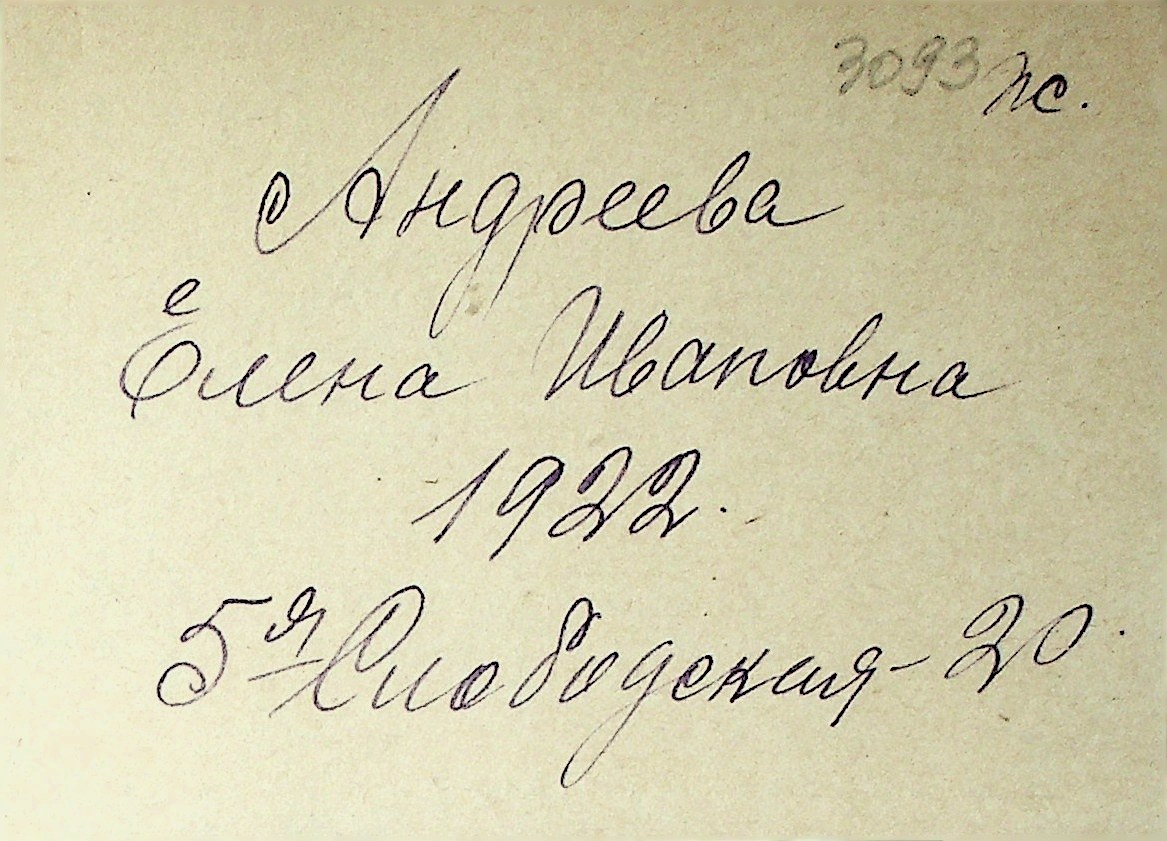 3093 пс.
Андреева
Елена Ивановна
1922.
5я Слободская - 20.